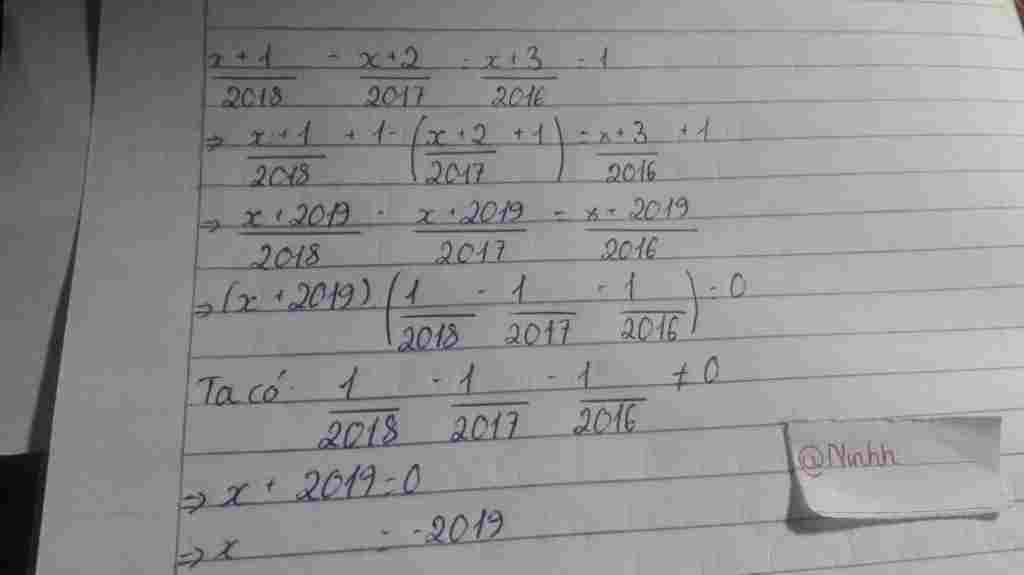 x+1/2018 - x+2/2017 = x+3/2016 = 1
=> x+1/2018 + 1 - (x+2/2017 + 1) = x+3/2016 + 1
=> x+2019/2018 - x+2019/2017 = x+2019/2016
=> (x+2019) (1/2018 - 1/2017 - 1/2016) = 0
Ta có: 1/2018 - 1/2017 - 1/2016 ≠ 0
@Ninhh
=> x + 2019 = 0
=> x = -2019